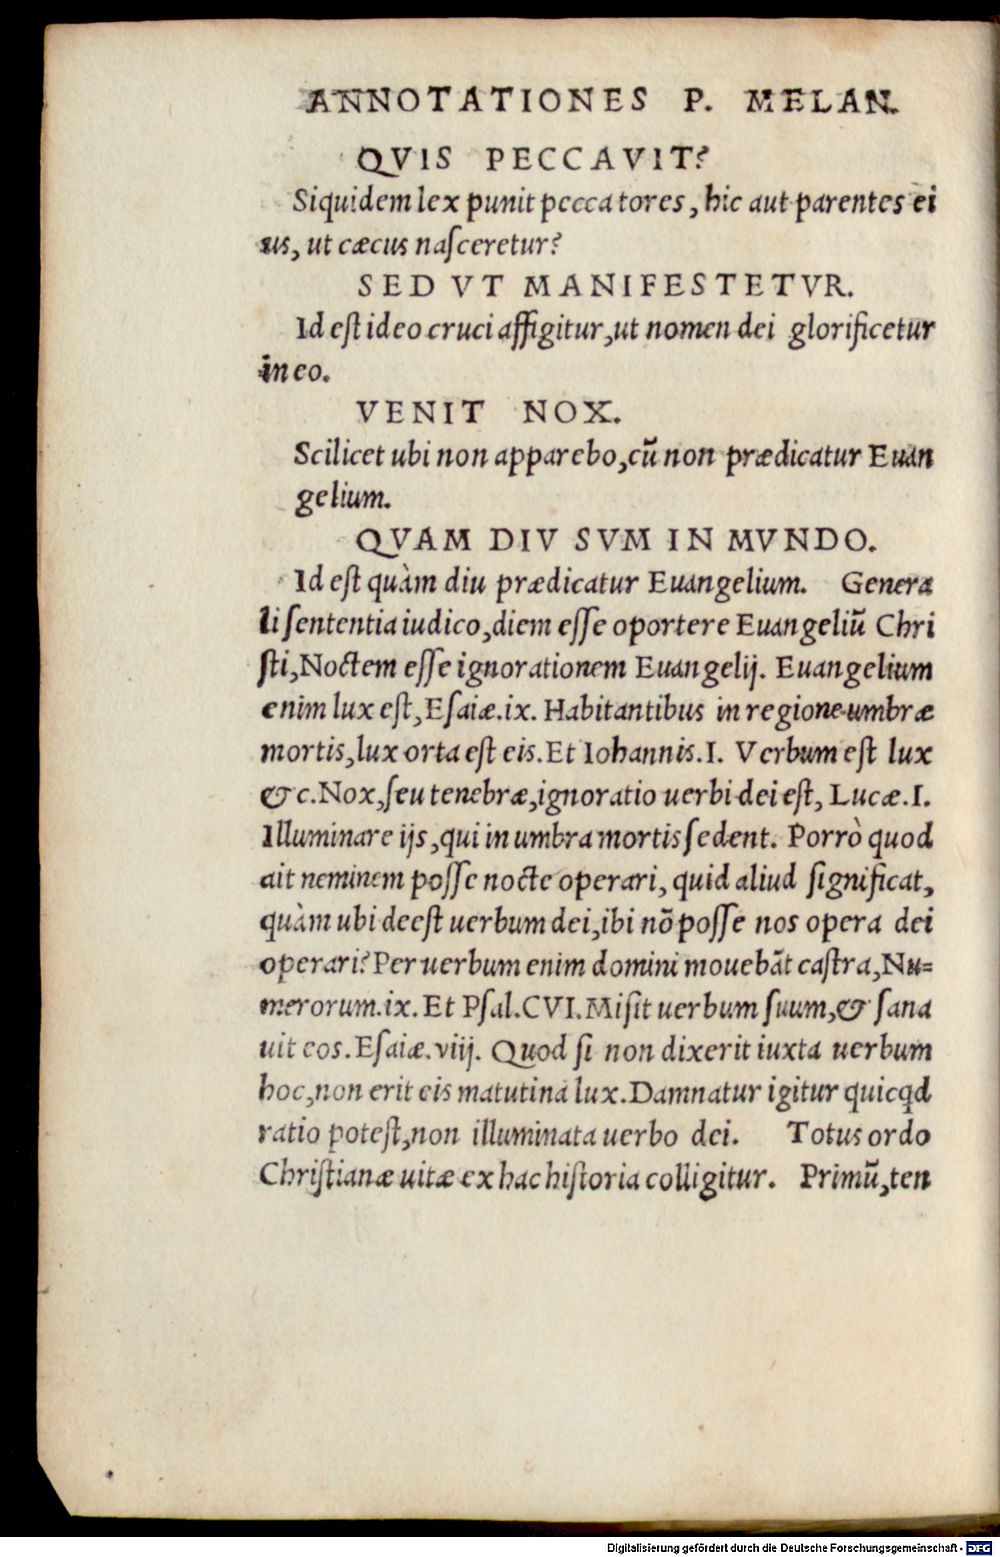 ANNOTATIONES P. MELAN.
QVIS PECCAVIT?
Siquidem lex punit peccatores, hic aut parentes ei
us, ut cæcus naſceretur?
SED VT MANIFESTETVR.
Id eſt ideo cruci affigitur, ut nomen dei glorificetur
in eo.
VENIT NOX.
Scilicet ubi non apparebo, cū non prædicatur Euan
gelium.
QVAM DIV SVM IN MVNDO.
Id eſt quàm diu prædicatur Euangelium. Genera
li ſententia iudico, diem eſſe oportere Euangeliū Chri
ſti, Noctem eſſe ignorationem Euangelij. Euangelium
enim lux eſt, Eſaiæ.ix. Habitantibus in regione umbræ
mortis, lux orta eſt eis. Et Iohannis.I. Verbum est lux
&c. Nox, ſeu tenebræ, ignoratio uerbi dei eſt, Lucæ.I.
Illuminare ijs, qui in umbra mortis ſedent. Porrò quod
ait neminem poſſe nocte operari, quid aliud ſignificat,
quàm ubi deeſt uerbum dei, ibi nõ poſſe nos opera dei
operari? Per uerbum enim domini mouebãt caſtra, Nu=
merorum.ix. Et Pſal.CVI. Miſit uerbum ſuum, & ſana
uit eos. Eſaiæ.viij. Quod ſi non dixerit iuxta uerbum
hoc, non erit eis matutina lux. Damnatur igitur quicꝗd
ratio poteſt, non illuminata uerbo dei. Totus ordo
Chriſtianæ uitæ ex hac hiſtoria colligitur. Primū, ten
Digitalisierung gefördert durch die Deutsche Forschungsgemeinschaft - DFG